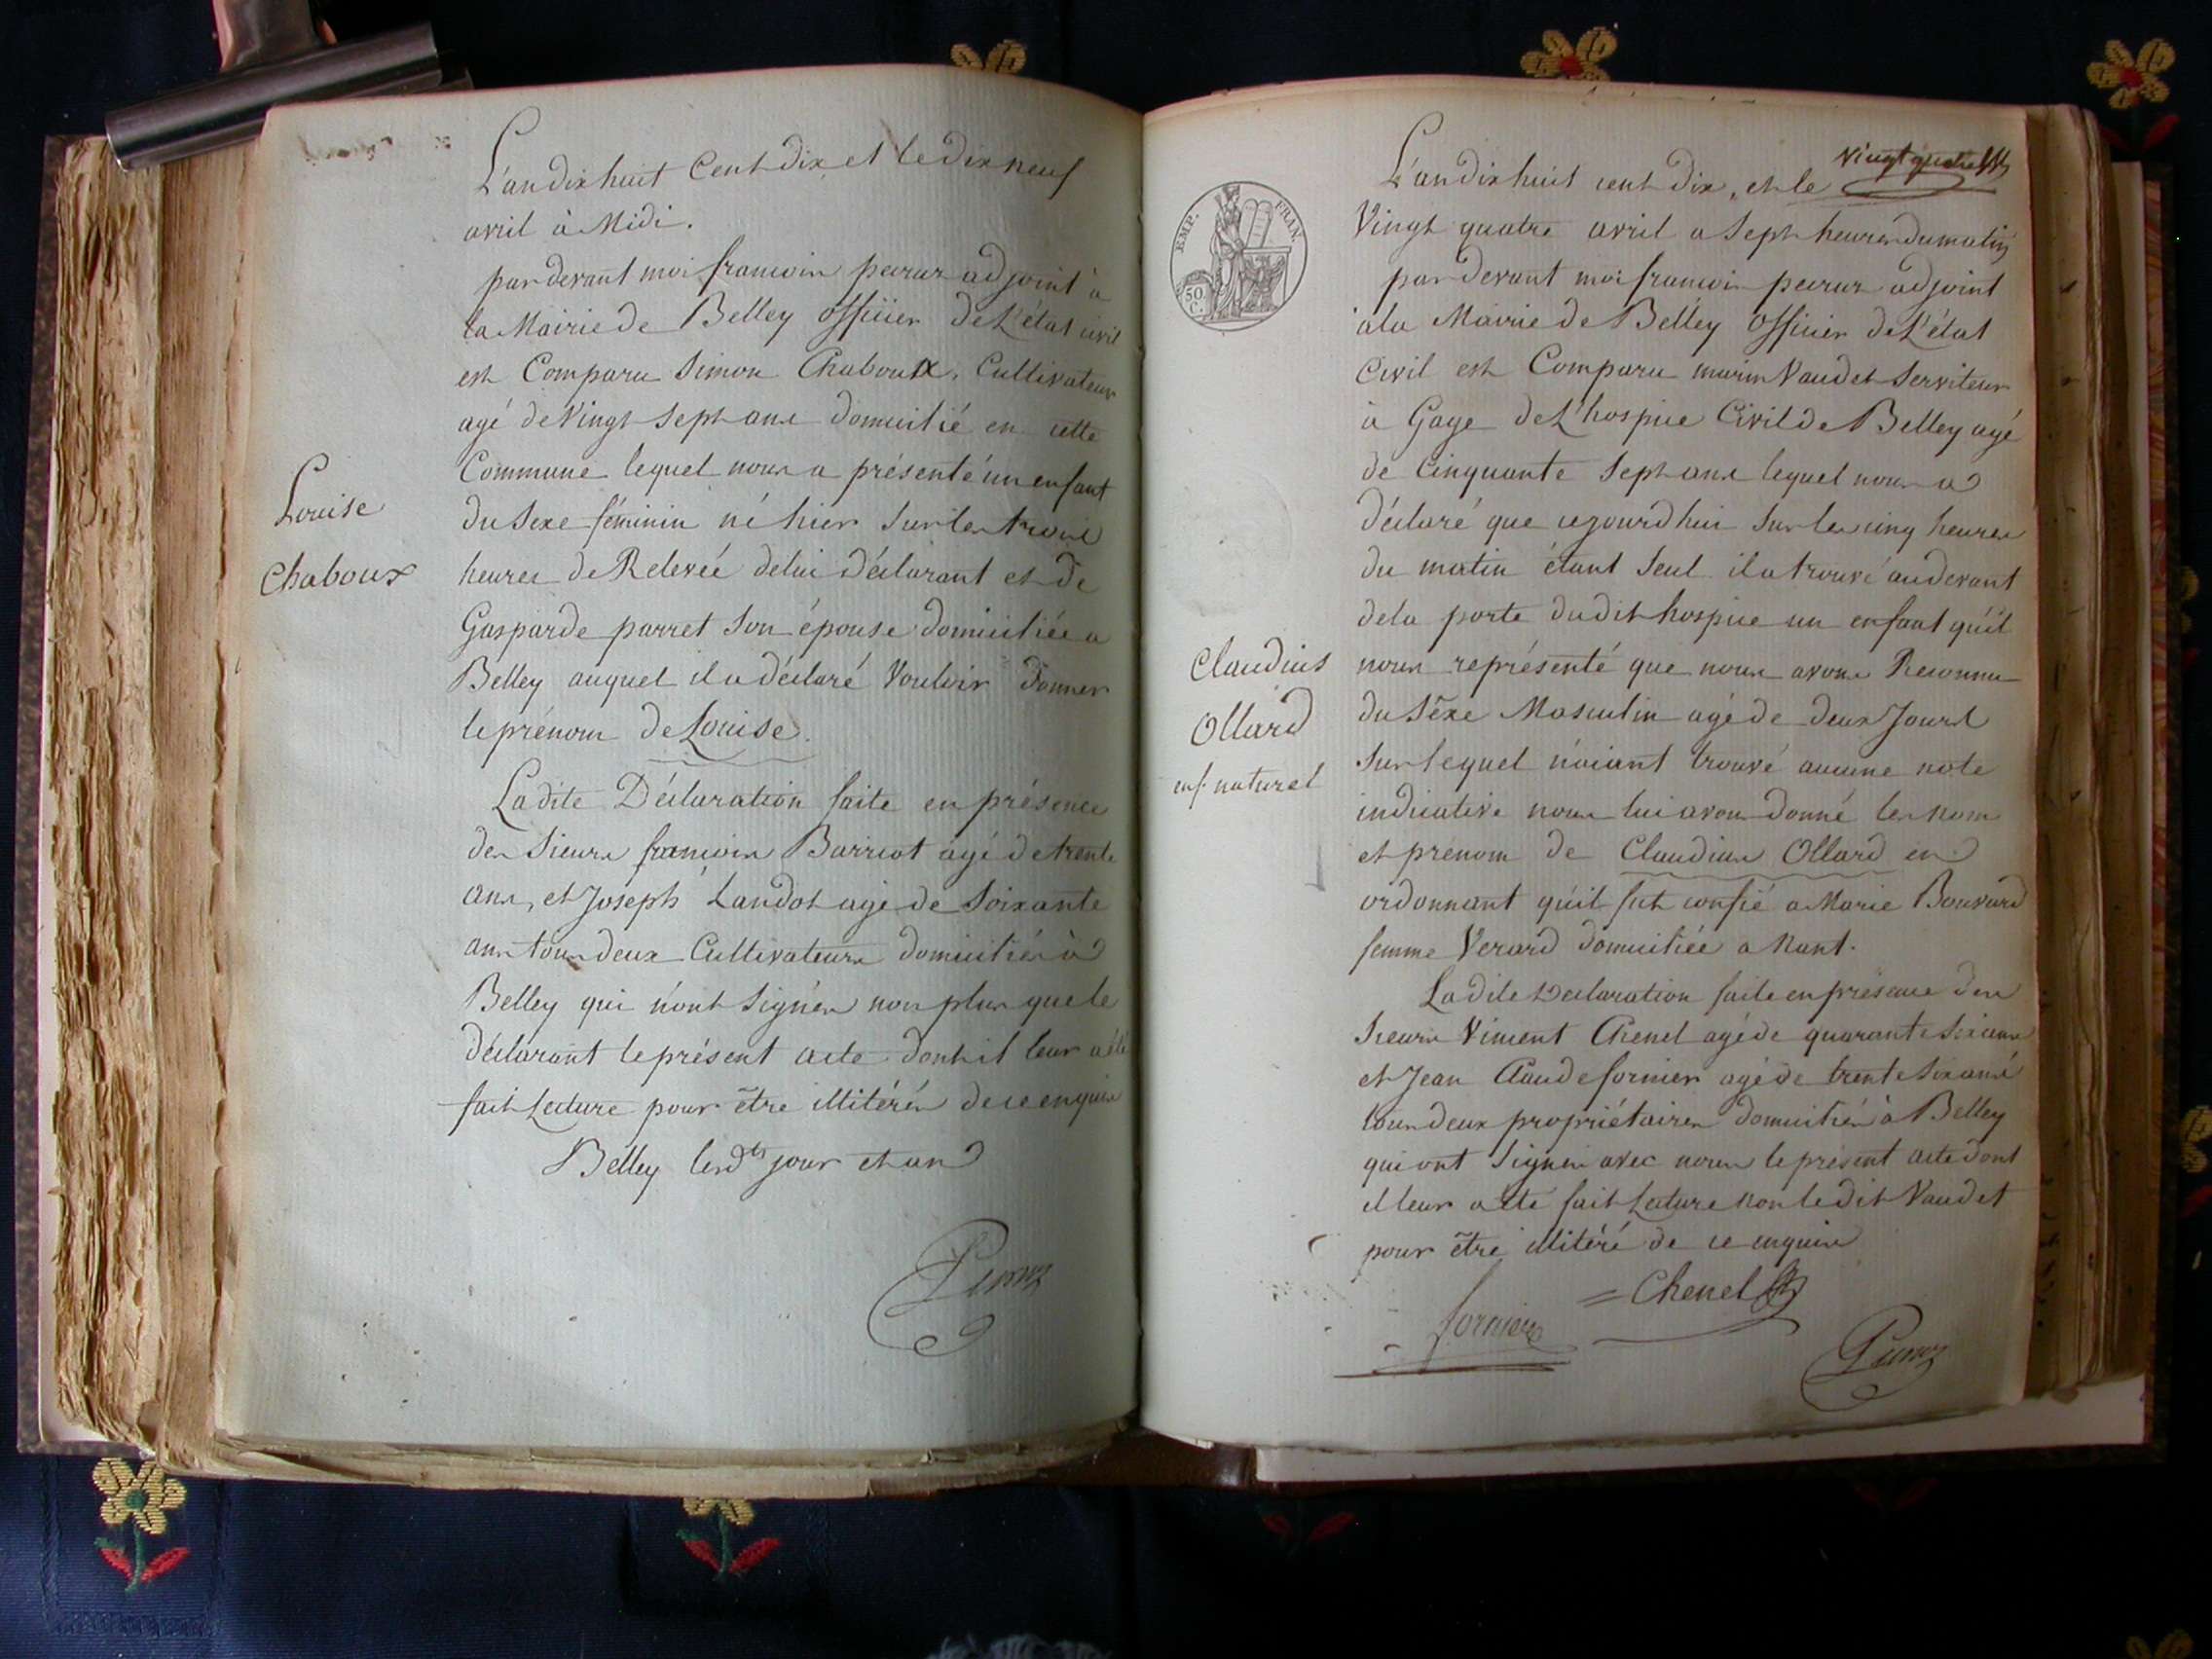 L'an dix huit Cent dix, et le dix neuf
avril à Midi.
par devant moi francois adjoint à
la Mairie de Belley officier de L'état civil
est Comparu Simon Chaboux, Cultivateur
agé de Vingt sept ans domicilié en cette
Commune lequel nous a présenté un enfant
du Sexe féminin né hier sur les trois
heures de Relevée de lui déclarant et de
Gasparde parret son épouse domiciliée a
Belley auquel il a déclaré Vouloir donner
le prénom de Louise.
La dite Déclaration faite en présence
des Sieurs francois Barriot agé de trente
ans, et Joseph Landot agé de Soixante
ans tous deux Cultivateurs domiciliés à
Belley qui n'ont signés non plus que le
déclarant le présent acte dont il leur a été
fait Lecture pour être illitérés de ce enquis
Belley lesdts jour et an
Louise
Chaboux
EMP. FRAN.
50 C.
Vingt quatre
L'an dix huit cent dix, et le
Vingt quatre avril a Sept heures du matin
par devant moi francois adjoint
a la Mairie de Belley officier de L'état
Civil est Comparu marin Vaudet Serviteur
à Gage de L'hospice Civil de Belley agé
de Cinquante Sept ans lequel nous a
déclaré que cejourd'hui sur les cinq heures
du matin étant seul il a trouvé au devant
de la porte dudit hospice un enfant qu'il
nous représenté que nous avons Reconnu
du Sêxe Masculin agé de deux Jours
sur lequel n'aiant trouvé aucune note
indicative nous lui avons donné les nom
et prenom de Claudius Ollard en
ordonnant qu'il fut confié a Marie Bouvard
femme Verard domiciliée a Nant.
La dite Declaration faite en présence des
Sieurs Vincent Chenel agé de quarante six ans
et Jean Claude fornier agé de trente six ans
tous deux propriétaires domiciliés à Belley
qui ont signés avec nous le présent acte dont
il leur a été fait Lecture non le dit Vaudet
pour être illitéré de ce enquis
Claudius
Ollard
enf. naturel
Chenel
fornier